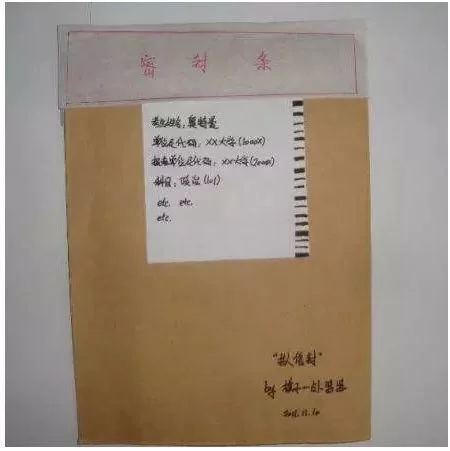 密封条
考生姓名：奥特曼
单位及代码：XX大学(1000X)
报考单位及代码：XX大学(2000X)
科目：政治(101)
etc. etc.
etc.
"拟信封"
by